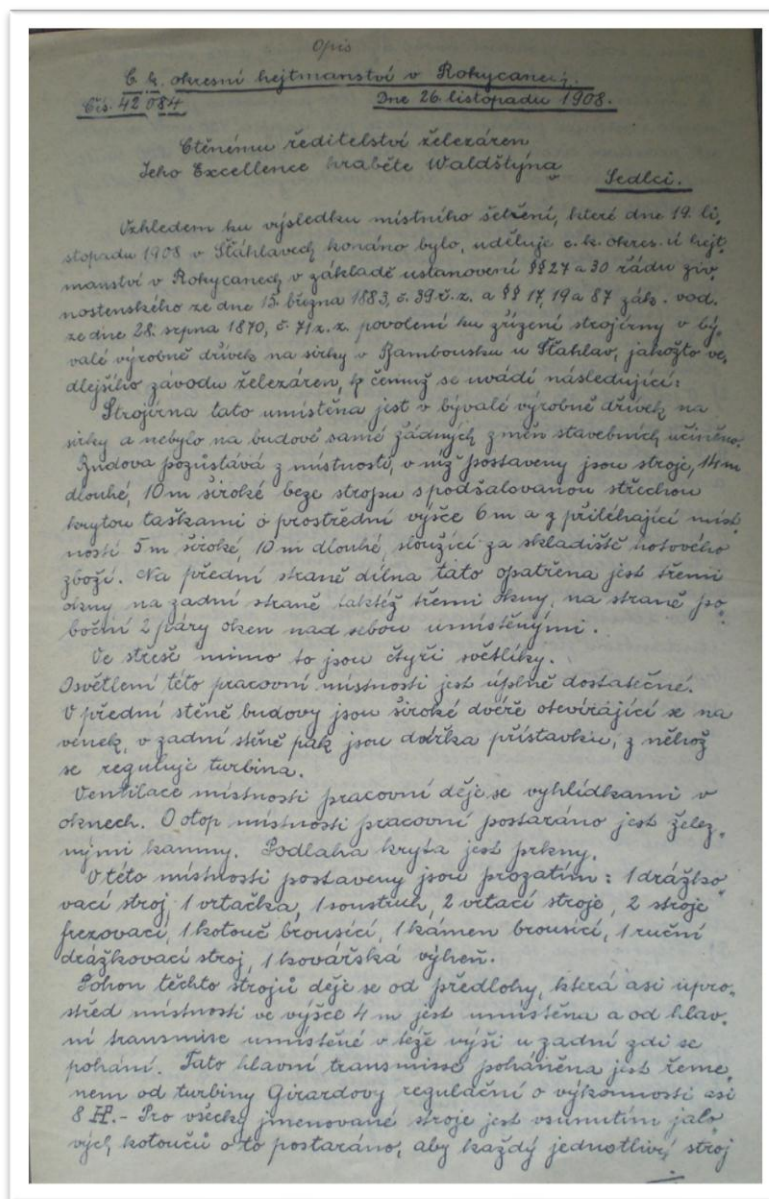 Opis
C. k. okresní hejtmanství v Rokycanech.
Čís. 42084 Dne 26. listopadu 1908.
Ctěnému ředitelství železáren
Jeho Excellence hraběte Waldštýna
Sedlci.
Vzhledem ku výsledku místního šetření, které dne 19. li-
stopadu 1908 v Šťáhlavech konáno bylo, uděluje c. k. okres. ní hejt-
manství v Rokycanech v základě ustanovení §§ 27 a 30 řádu živ-
nostenského ze dne 15. března 1883, č. 39. ř. z. a §§ 17, 19 a 87 zák. vod.
ze dne 28. srpna 1870, č. 71 z. z. povolení ku zřízení strojírny v bý-
valé výrobně dřívek na sirky v Bambousku u Šťáhlav, jakožto ve-
dlejšího závodu železáren, k čemuž se uvádí následující:
Strojírna tato umístěna jest v bývalé výrobně dřívek na
sirky a nebylo na budově samé žádných změn stavebních učiněno.
Budova pozůstává z místnosti, v níž postaveny jsou stroje, 14 m
dlouhé, 10 m široké beze stropu s podšalovanou střechou
krytou taškami o prostřední výšce 6 m a z přiléhající míst-
nosti 5 m široké, 10 m dlouhé, sloužící za skladiště hotového
zboží. Na přední straně dílna tato opatřena jest třemi
okny na zadní straně taktéž třemi okny, na straně po-
boční 2 páry oken nad sebou umístěnými.
Ve střeše mimo to jsou čtyři světlíky.
Osvětlení této pracovní místnosti jest úplně dostatečné.
V přední stěně budovy jsou široké dvéře otevírající se na
venek, v zadní stěně pak jsou dvířka přístavku, z něhož
se reguluje turbina.
Ventilace místnosti pracovní děje se vyhlídkami v
oknech. O otop místnosti pracovní postaráno jest želez-
nými kamny. Podlaha kryta jest prkny.
V této místnosti postaveny jsou prozatím: 1 drážko-
vací stroj, 1 vrtačka, 1 soustruh, 2 vrtací stroje, 2 stroje
frezovací, 1 kotouč brousící, 1 kámen brousící, 1 ruční
drážkovací stroj, 1 kovářská výheň.
Pohon těchto strojů děje se od předlohy, která asi upro-
střed místnosti ve výšce 4 m jest umístěna a od hlav-
ní transmise umístěné v téže výši u zadní zdi se
pohání. Tato hlavní transmisse poháněna jest řeme-
nem od turbiny Girardovy regulační o výkonnosti asi
8 HP. - Pro všecky jmenované stroje jest vsunutím jalo-
vých kotoučů o to postaráno, aby každý jednotlivý stroj